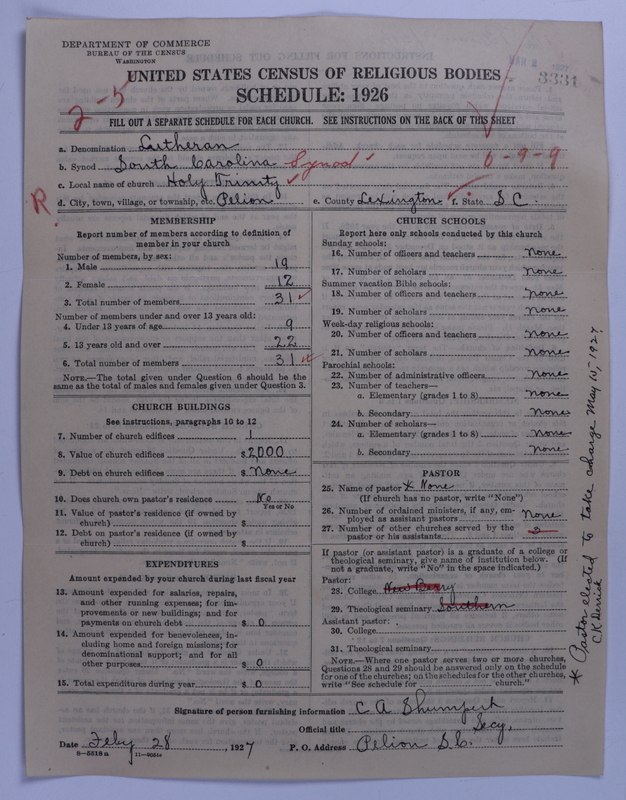 DEPARTMENT OF COMMERCE
BUREAU OF THE CENSUS
WASHINGTON
UNITED STATES CENSUS OF RELIGIOUS BODIES
3331
SCHEDULE: 1926
2-5
FILL OUT A SEPARATE SCHEDULE FOR EACH CHURCH. SEE INSTRUCTIONS ON THE BACK OF THIS SHEET
a. Denomination Lutheran
b. Synod South Carolina Synod
6-9-9
c. Local name of church Holy Trinity
R
d. City, town, village, or township, etc. Pelion e. County Lexington f. State S C.
MEMBERSHIP
Report number of members according to definition of
member in your church
Number of members, by sex:
1. Male 19
2. Female 12
3. Total number of members 31
Number of members under and over 13 years old:
4. Under 13 years of age 9
5. 13 years old and over 22
6. Total number of members 31
NOTE.—The total given under Question 6 should be the
same as the total of males and females given under Question 3.
CHURCH BUILDINGS
See instructions, paragraphs 10 to 12
7. Number of church edifices 1
8. Value of church edifices $2,000
9. Debt on church edifices $None
10. Does church own pastor's residence No
Yes or No
11. Value of pastor's residence (if owned by
church) $
12. Debt on pastor's residence (if owned by
church) $
EXPENDITURES
Amount expended by your church during last fiscal year
13. Amount expended for salaries, repairs,
and other running expenses; for im-
provements or new buildings; and for
payments on church debt $ 0
14. Amount expended for benevolences, in-
cluding home and foreign missions; for
denominational support; and for all
other purposes $ 0
15. Total expenditures during year $ 0
CHURCH SCHOOLS
Report here only schools conducted by this church
Sunday schools:
16. Number of officers and teachers None
17. Number of scholars None
Summer vacation Bible schools:
18. Number of officers and teachers None
19. Number of scholars None
Week-day religious schools:
20. Number of officers and teachers None
21. Number of scholars None
Parochial schools:
22. Number of administrative officers None
23. Number of teachers—
a. Elementary (grades 1 to 8) None
b. Secondary None
24. Number of scholars—
a. Elementary (grades 1 to 8) None
b. Secondary None
PASTOR
25. Name of pastor * None
(If church has no pastor, write "None")
26. Number of ordained ministers, if any, em-
ployed as assistant pastors None
27. Number of other churches served by the
pastor or his assistants 3
If pastor (or assistant pastor) is a graduate of a college or
theological seminary, give name of institution below. (If
not a graduate, write "No" in the space indicated.)
Pastor:
28. College Newberry
29. Theological seminary Southern
Assistant pastor:
30. College
31. Theological seminary
NOTE.—Where one pastor serves two or more churches,
Questions 28 and 29 should be answered only on the schedule
for one of the churches; on the schedules for the other churches,
write "See schedule for church."
* Pastor elected to take charge May 15, 1927.
C K Derrick
Signature of person furnishing information C A Shumpert
Official title Secy,
Date Feby 28, 1927 P. O. Address Pelion S.C.
8-5518 a